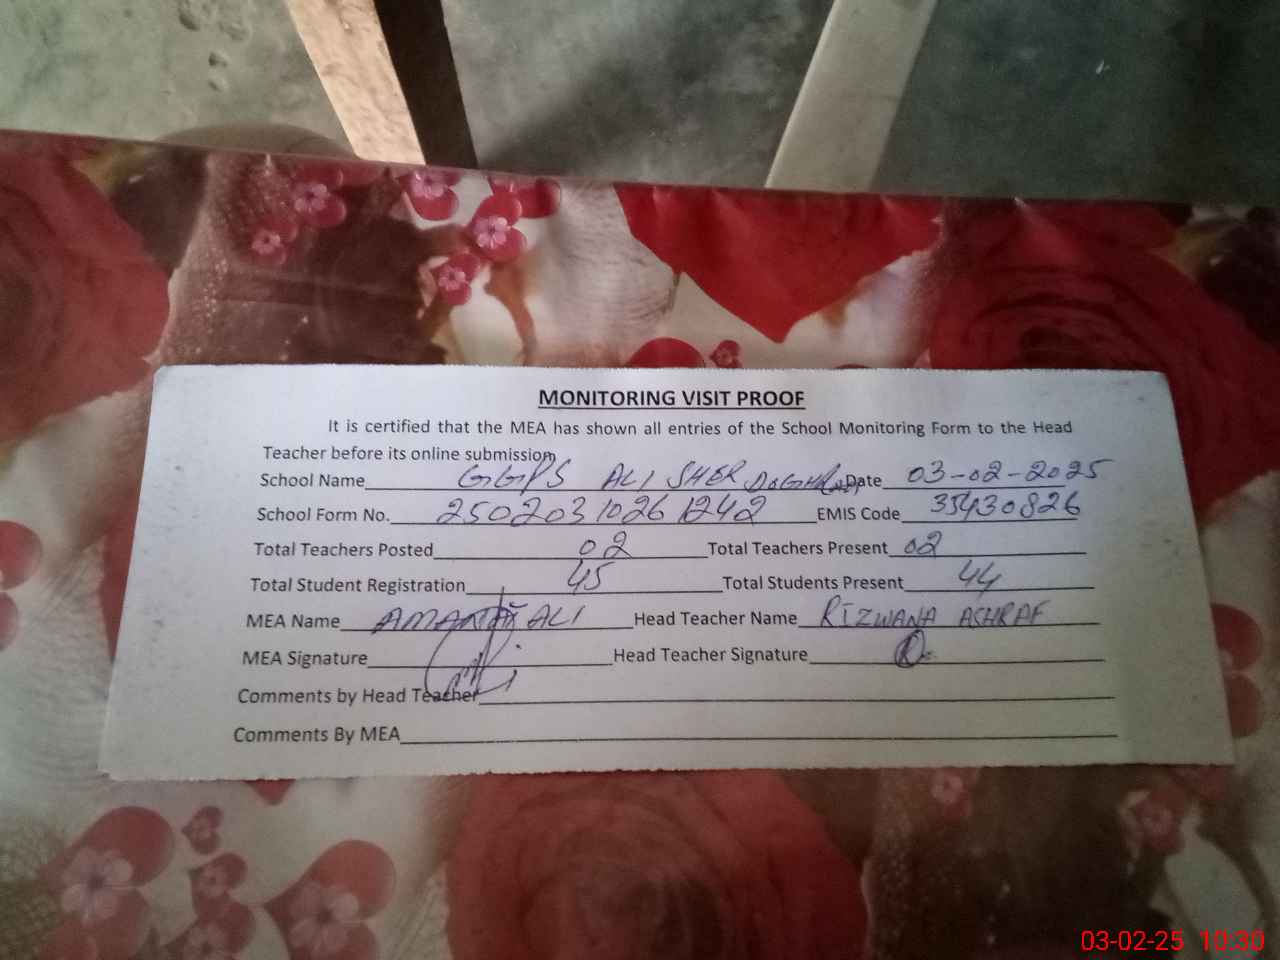 MONITORING VISIT PROOF
It is certified that the MEA has shown all entries of the School Monitoring Form to the Head
Teacher before its online submission
School Name GGPS ALI SHER Date 03-02-2025
School Form No. 25020310261242 EMIS Code 35430826
Total Teachers Posted 02 Total Teachers Present 02
Total Student Registration 45 Total Students Present 44
MEA Name ALI Head Teacher Name RIZWANA ASHRAF
MEA Signature Head Teacher Signature
Comments by Head Teacher
Comments By MEA
03-02-25 10:30